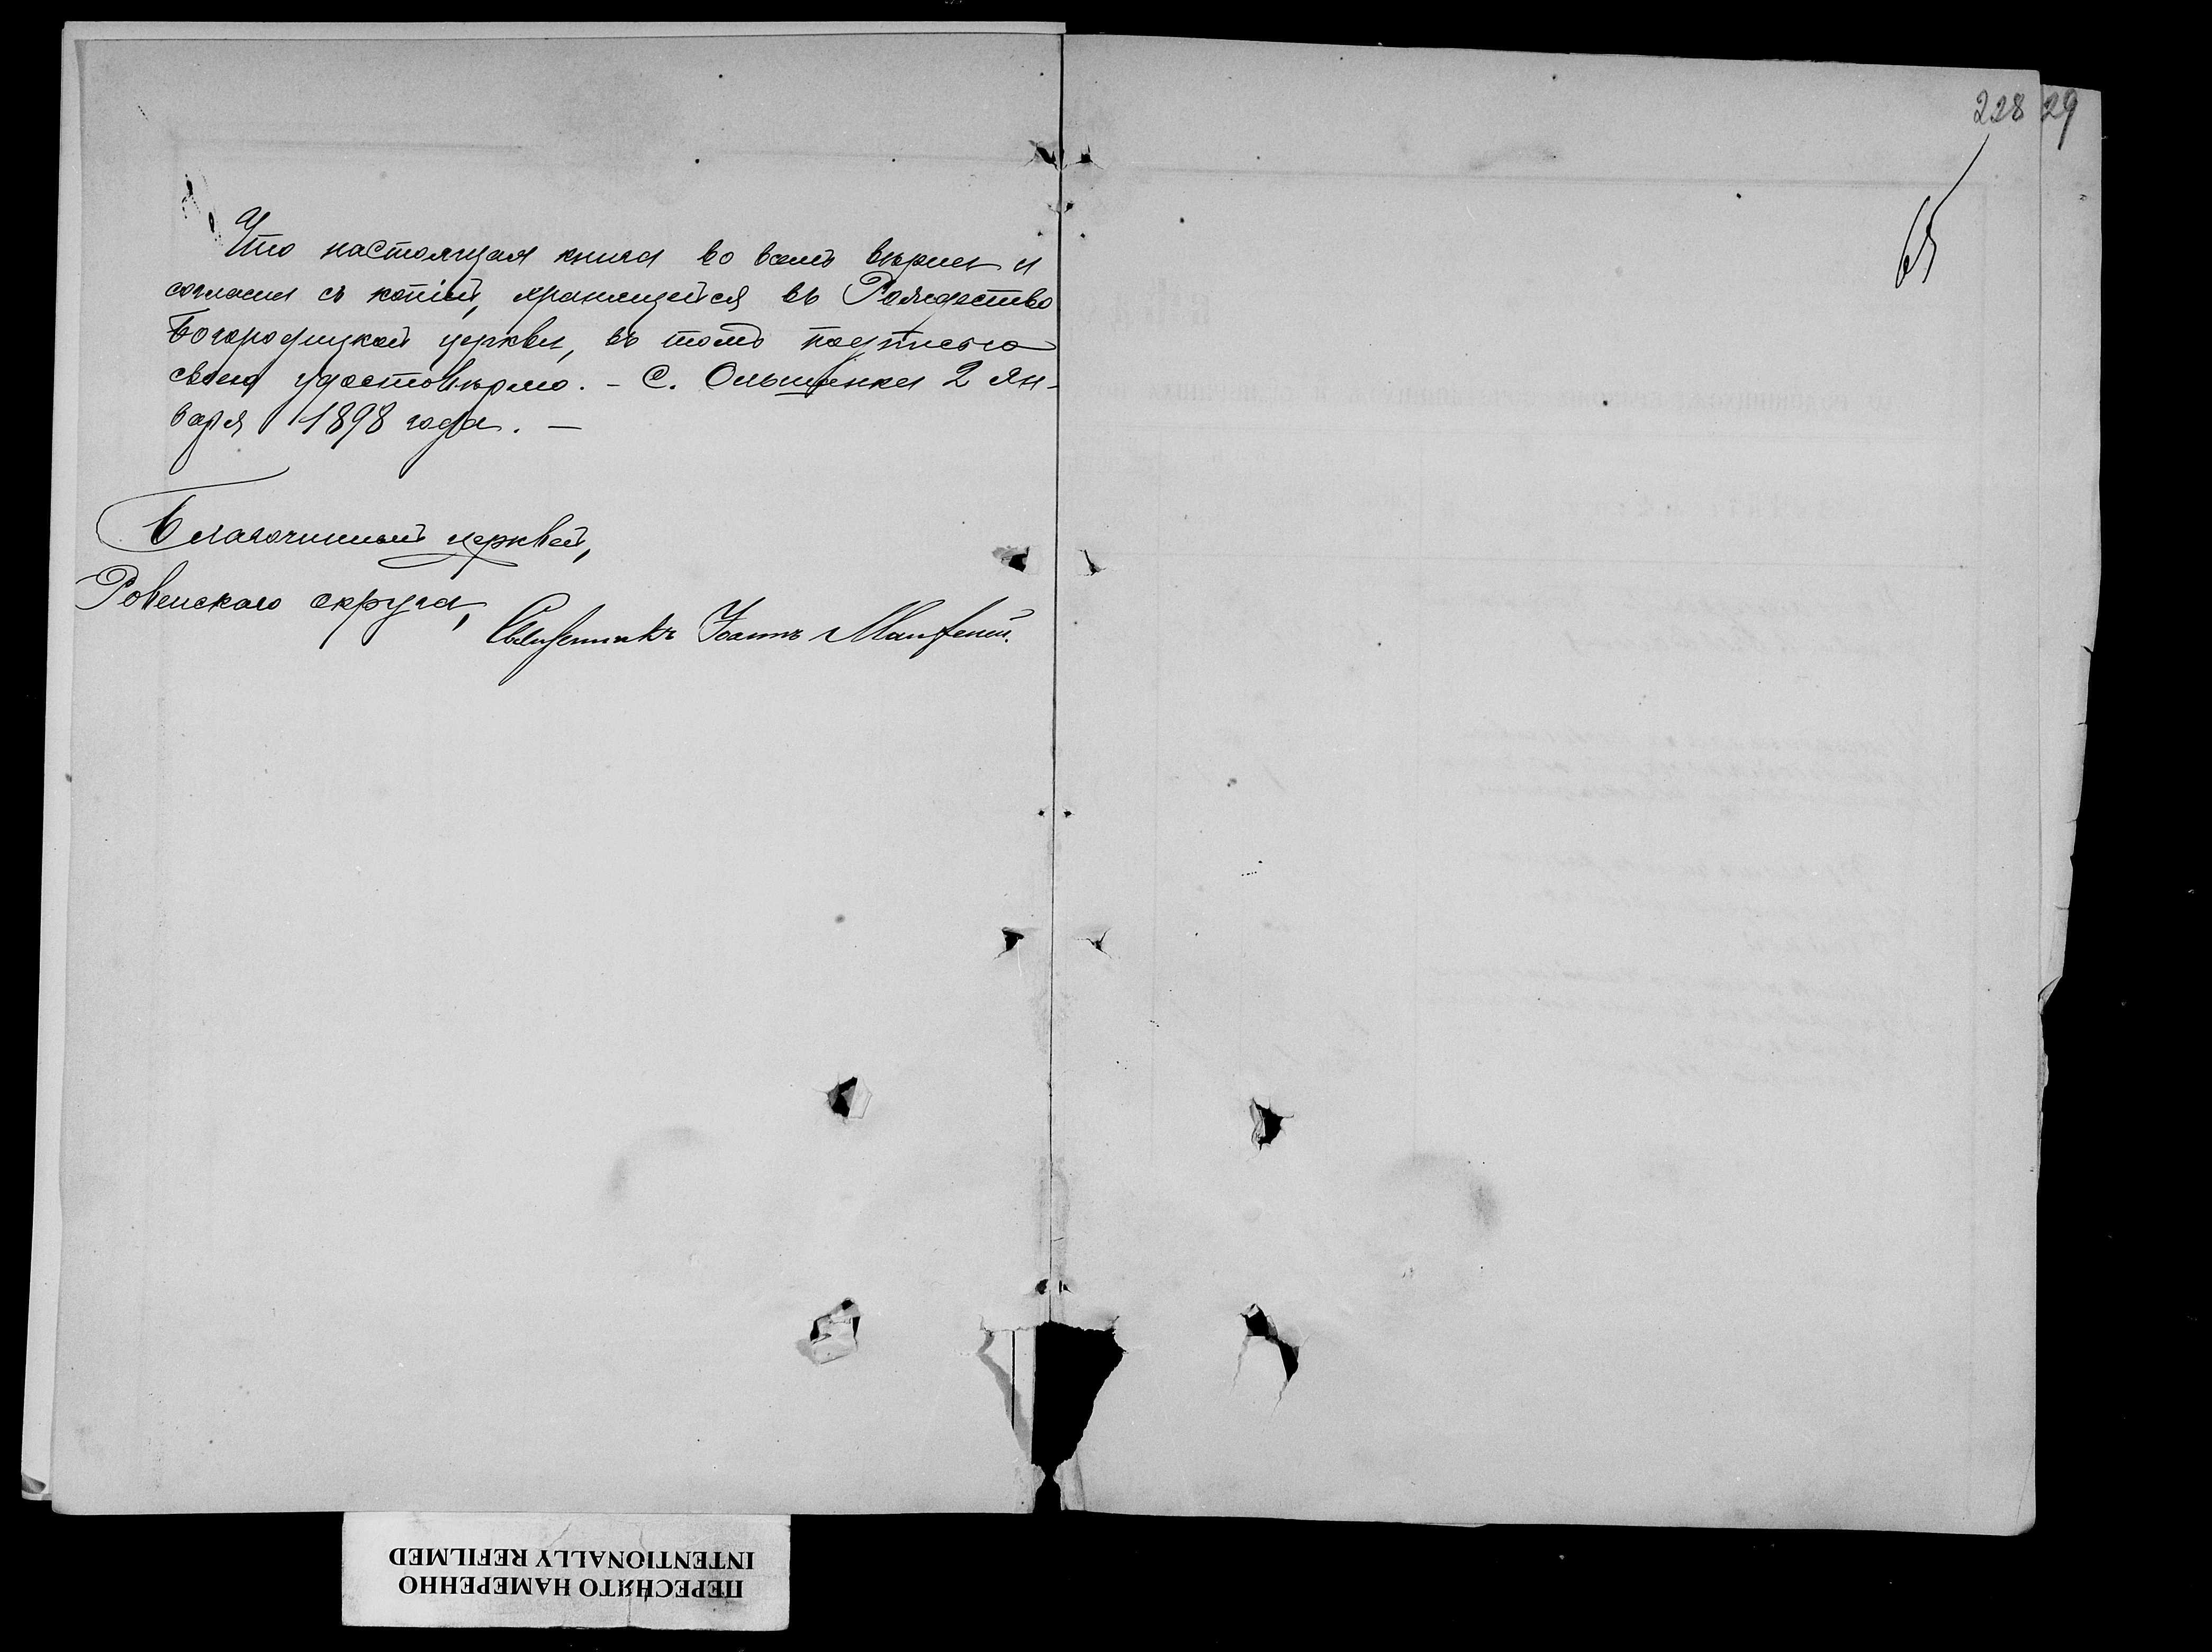 Что настоящая книга во всемъ вѣрна и
согласна съ копіей, хранящейся въ Рождество
Богородицкой церкви, въ томъ подписью
своею удостовѣряю. – С. Ольшанка 2 Ян-
варя 1898 года. –
Благочинный церквей,
Ровенскаго округа,
Священникъ Іоаннъ
228
29
65
ПЕРЕСНЯТО НАМЕРЕННО
INTENTIONALLY REFILMED